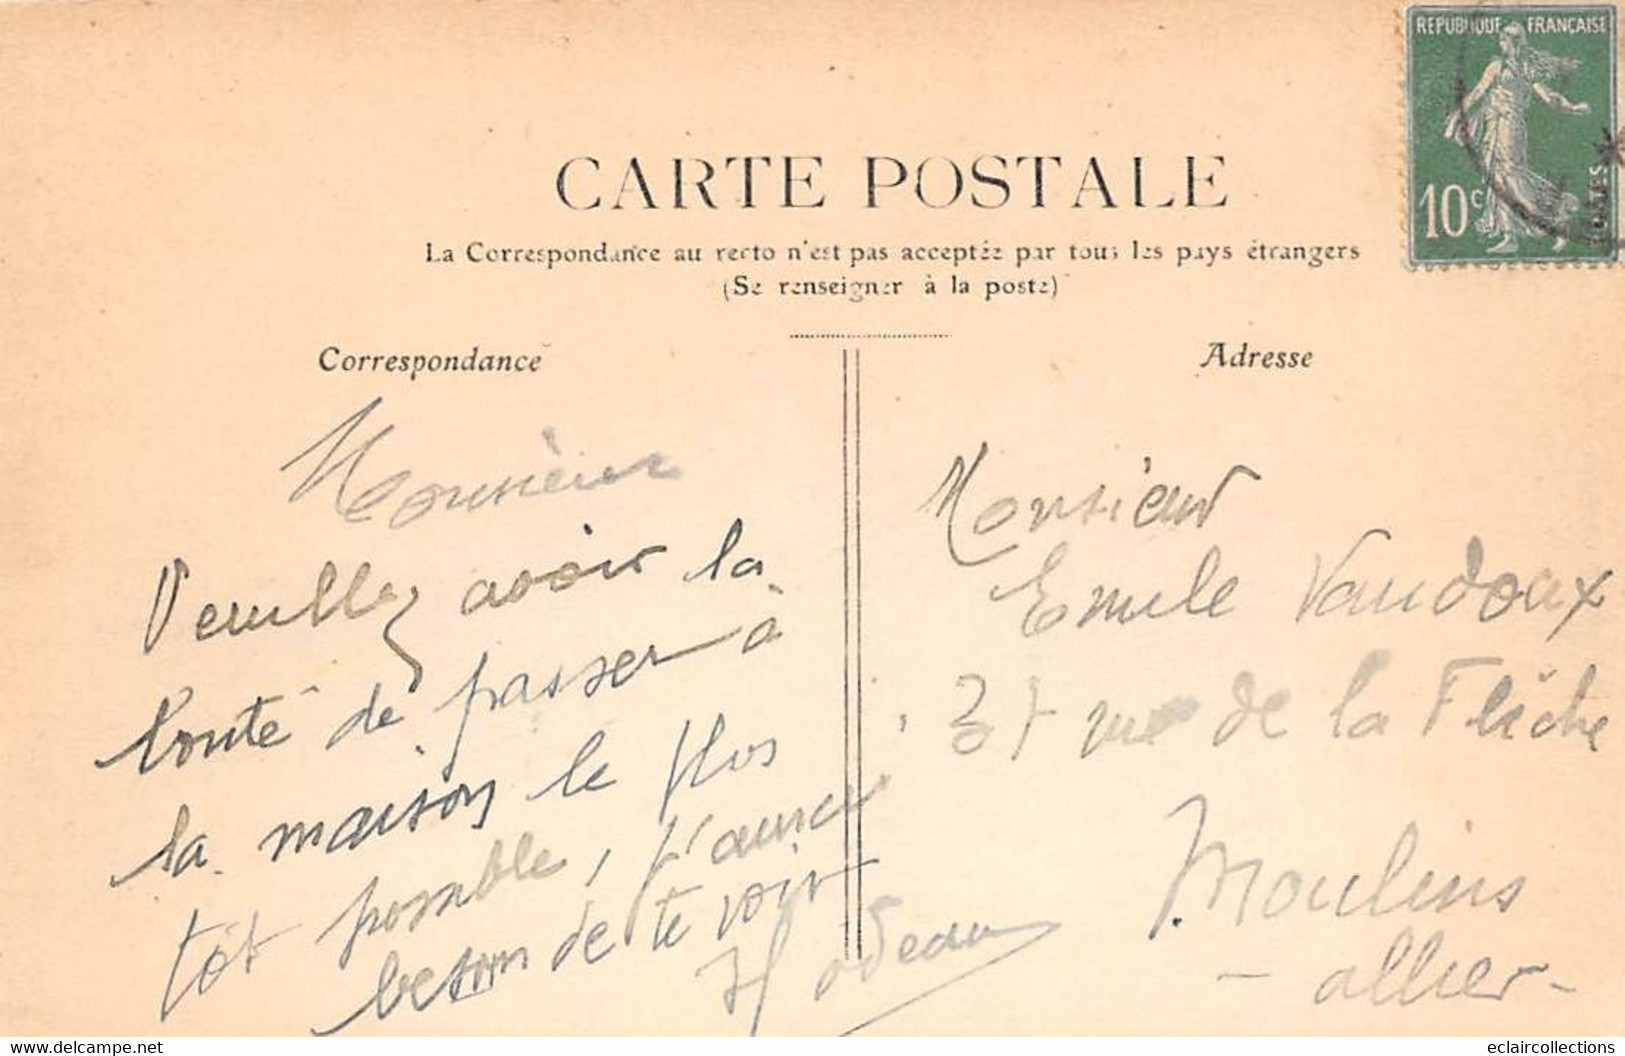 RÉPUBLIQUE FRANÇAISE
10c
POSTES
CARTE POSTALE
La Correspondance au recto n'est pas acceptée par tous les pays étrangers
(Se renseigner à la poste)
Correspondance
Monsieur
Veuillez avoir la
bonté de passer à
la maison le plus
tôt possible, j'aurai
besoin de te voir
Adresse
Monsieur
Emile Vaudoux
rue de la Flèche
Moulins
- allier -
www.delcampe.net
eclaircollections